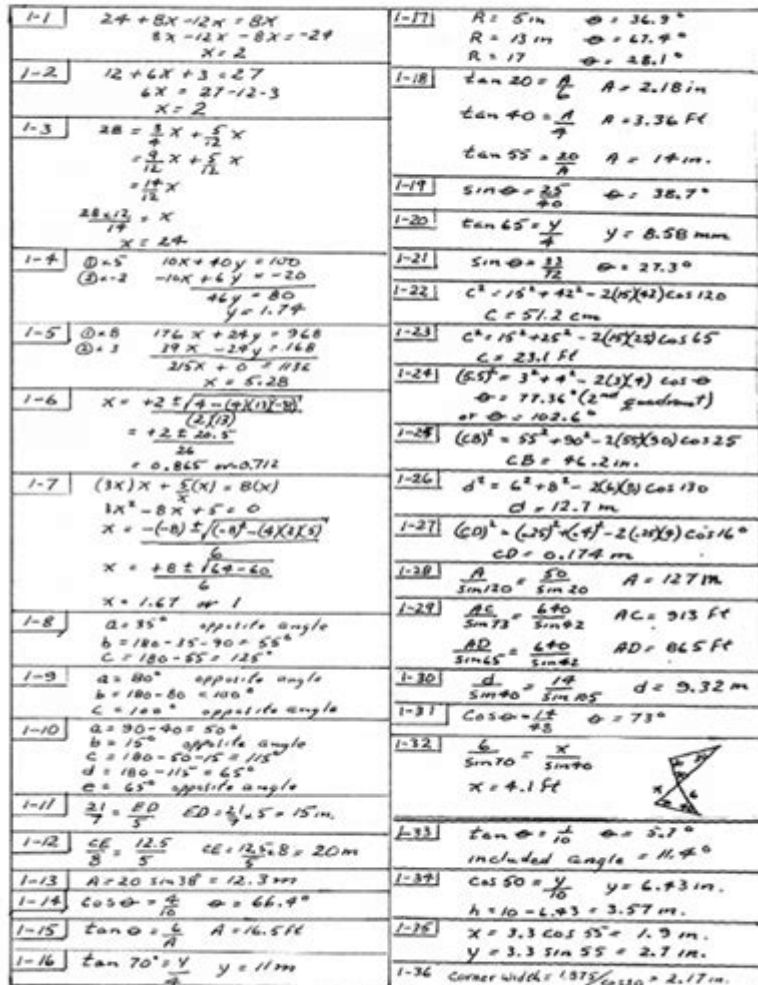 1-1 24 + 8x - 12x = 8x
8x - 12x - 8x = -24
x = 2
1-2 12 + 6x + 3 = 27
6x = 27-12-3
x = 2
1-3 28 = 3/4 x + 5/12 x
= 9/12 x + 5/12 x
= 14/12 x
28x12/14 = x
x = 24
1-4 ①x5 10x + 40y = 100
②x-2 -10x + 6y = -20
46y = 80
y = 1.74
1-5 ①x8 176x + 24y = 968
②x3 39x - 24y = 168
215x + 0 = 1136
x = 5.28
1-6 x = +2 ± √4 - (4)(13)(-8) / (2)(13)
= +2 ± 20.5 / 26
= 0.865 or -0.712
1-7 (3x)x + 5/x (x) = 8(x)
3x² - 8x + 5 = 0
x = -(-8) ± √(-8)² - (4)(3)(5) / 6
x = +8 ± √64-60 / 6
x = 1.67 or 1
1-8 a = 35° opposite angle
b = 180-35-90 = 55°
c = 180-55 = 125°
1-9 a = 80° opposite angle
b = 180-80 = 100°
c = 100° opposite angle
1-10 a = 90-40 = 50°
b = 15° opposite angle
c = 180-50-15 = 115°
d = 180-115 = 65°
e = 65° opposite angle
1-11 21/7 = ED/5 ED = 21/7 x 5 = 15 in.
1-12 CE/8 = 12.5/5 CE = 12.5/5 x 8 = 20 m
1-13 A = 20 sin 38 = 12.3 m
1-14 cos θ = 4/10 θ = 66.4°
1-15 tan θ = 6/A A = 16.5 ft
1-16 tan 70° = y/4 y = 11 m
1-17 R = 5 in θ = 36.9°
R = 13 in θ = 67.4°
R = 17 θ = 28.1°
1-18 tan 20 = A/6 A = 2.18 in
tan 40 = A/4 A = 3.36 Ft
tan 55 = 20/A A = 14 in.
1-19 sin θ = 25/40 θ = 38.7°
1-20 tan 65 = y/4 y = 8.58 mm
1-21 sin θ = 33/72 θ = 27.3°
1-22 c² = 15² + 42² - 2(15)(42) cos 120
c = 51.2 cm
1-23 c² = 15² + 25² - 2(15)(25) cos 65
c = 23.1 ft
1-24 (5.5)² = 3² + 4² - 2(3)(4) cos θ
θ = 77.36° (2nd quadrant)
or θ = 102.6°
1-25 (CB)² = 55² + 90² - 2(55)(90) cos 25
CB = 46.2 in.
1-26 d² = 6² + 8² - 2(6)(8) cos 130
d = 12.7 m
1-27 (CD)² = (.25)² + (.4)² - 2(.25)(.4) cos 16°
CD = 0.174 m
1-28 A/sin120 = 50/sin 20 A = 127 m
1-29 AC/sin73 = 640/sin42 AC = 913 Ft
AD/sin65 = 640/sin42 AD = 865 Ft
1-30 d/sin40 = 14/sin 105 d = 9.32 m
1-31 cos θ = 14/48 θ = 73°
1-32 6/sin70 = x/sin40
x = 4.1 ft
x 6
1-33 tan θ = 1/10 θ = 5.7°
included angle = 11.4°
1-34 cos 50 = y/10 y = 6.43 in.
h = 10 - 6.43 = 3.57 m.
1-35 x = 3.3 cos 55 = 1.9 m.
y = 3.3 sin 55 = 2.7 in.
1-36 corner width = 1.875/cos30 = 2.17 in.